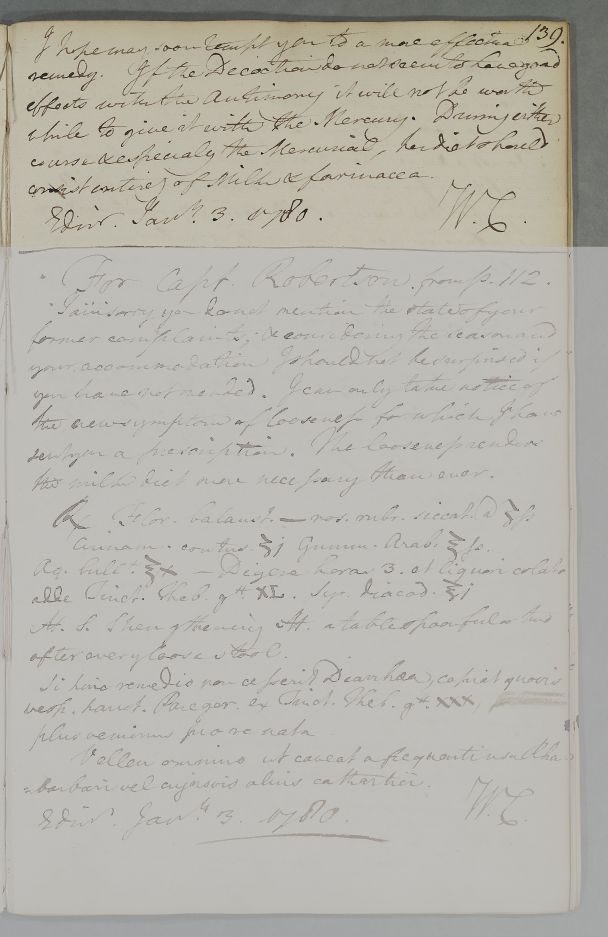 139.
I hope may soon tempt you to a more effectual
remedy. If the Decoction do not seem to have good
effects with the Antimony it will not be worth
while to give it with the Mercury. During either
course & especialy the Mercurial, her diet should
consist entirely of Milk & farinacea.
Edinr. Jany. 3. 1780. W.C.
For Capt. Robertson from p. 112.
I am sorry you do not mention the state of your
former complaints; & considering the season and
your accommodation I should not be surprised if
you have not mended. I can only take notice of
the new symptom of looseness for which I have
sent you a prescription. The looseness renders
the milk diet more necessary than ever.
℞ Flor. balaust. — ros. rubr. siccat. a ʒſs.
Cinnam. contus. ʒj Gumm. Arab. ʒſs.
Aq. bullt. ℥x — Digere horas 3. et liquori colato
adde Tinct. Theb. gtt XL. Syr. diacod. ℥j
At. S. Strengthening At. a tablespoonful or two
after every loose stool.
Si hinc remedio non cesserit Diarrhœa, capiat quovis
vesp. haust. Paregor. ex Tinct. Theb. gt. XXX,
plus veminus pro re nata
Vellem omnino ut caveat a frequenti usu Rha
=barbari vel cujusvis alius cathartici.
Edinr. Jany 3. 1780. W.C.